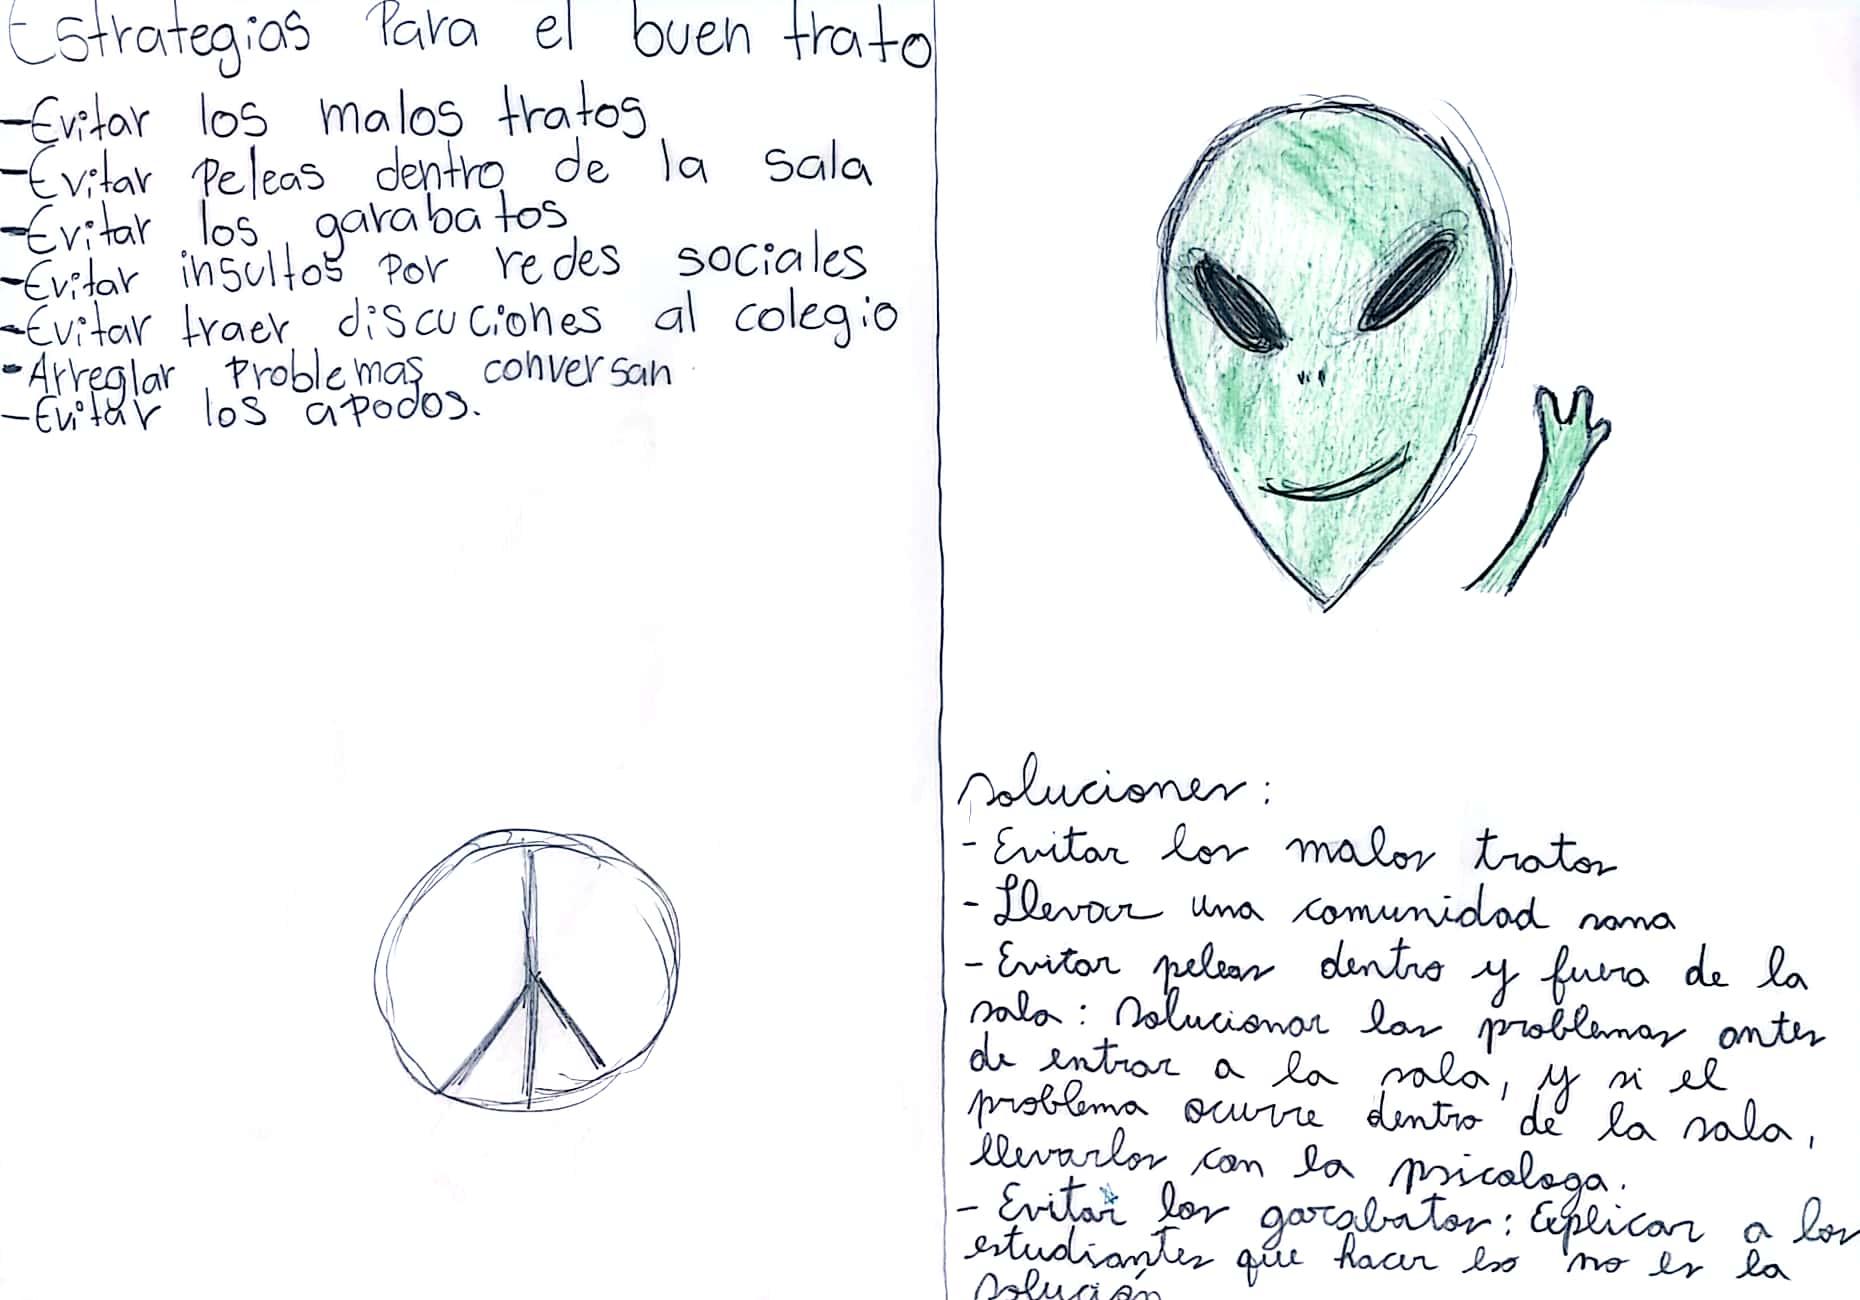 Estrategias Para el buen trato
-Evitar los malos tratos
-Evitar Peleas dentro de la sala
-Evitar los garabatos
-Evitar insultos por redes sociales
-Evitar traer discuciones al colegio
-Arreglar problemas conversan
-Evitar los apodos.
soluciones:
- Evitar los malos tratos
- Llevar una comunidad sana
- Evitar peleas dentro y fuera de la
sala: solucionar los problemas antes
de entrar a la sala, y si el
problema ocurre dentro de la sala,
llevarlos con la psicologa.
- Evitar los garabatos: Explicar a los
estudiantes que hacer eso no es la
solución